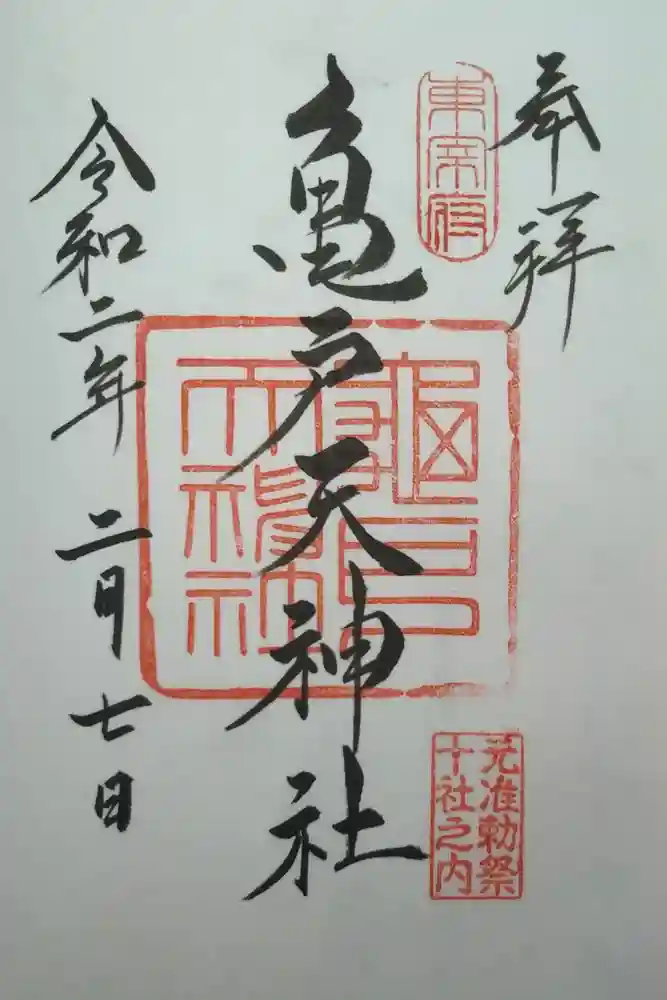 奉拝
東宰府
亀戸天神社
龜戸天神社
元准勅祭
十社之内
令和二年 二月七日